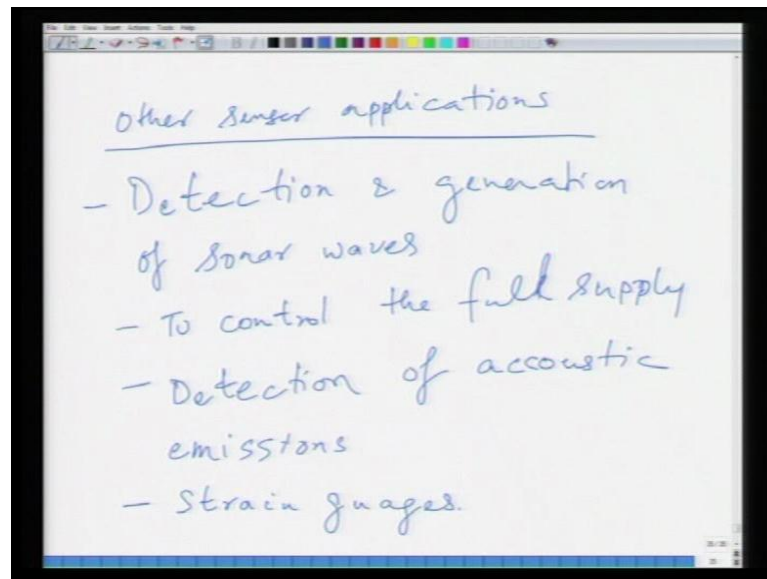 File Edit View Insert Actions Tools Help
Other sensor applications
- Detection & generation
of sonar waves
- To control the full supply
- Detection of accoustic
emissions
- Strain guages.